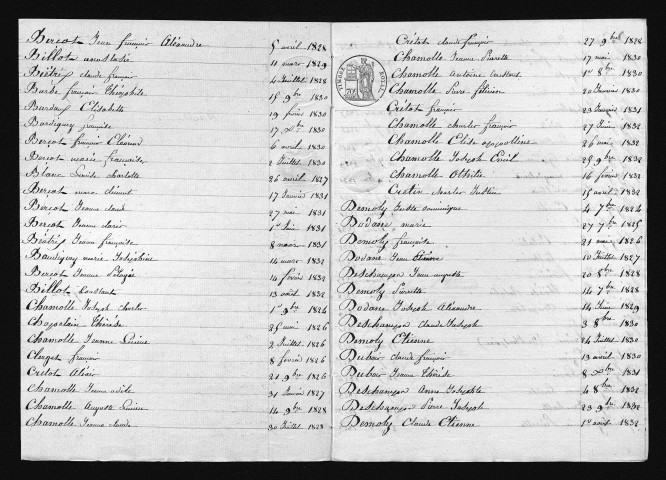 Bercot Jean françois Alexandre 5 avril 1828
Billot anastasie 11 mars 1829
Biétrix claude françois 4 Juillet 1828
Barbe françois Théophile 15 9bre 1830
Bardau Elisabeth 19 février 1830
Bardigney françoise 17 Xbre 1830
Bercot françois Eléonor 6 avril 1830
Bercot marie françoise 2 Juillet 1830
Blanc charlotte 26 avril 1827
Bercot marc clément 17 Janvier 1831
Bercot Jeanne claude 27 mai 1831
Bercot Jeanne claire 1er Juin 1831
Jeanne françoise 8 mars 1831
Baudigney marie Joséphine 14 mars 1832
Bercot Jeanne Pélagie 14 février 1832
Billot constant 13 août 1832
Chamolle Joseph charles 1er 9bre 1824
Chapelain Thérèse 25 avril 1826
Chamolle Jeanne Louise 2 Juillet 1826
Clerget françois 8 février 1826
Cretot Alexis 21 9bre 1826
Chamolle Jeanne adèle 31 Janvier 1827
Chamolle Auguste Lucien 14 9bre 1828
Chamolle Jeanne claude 30 Juillet 1828
Crétot claude françois 27 9bre 1828
Chamolle Jeanne Pierrette 17 mai 1830
Chamolle Antoine 1er 8bre 1830
Chamolle Pierre félicien 20 Janvier 1830
Crétot françois 23 Janvier 1831
Chamolle charles françois 27 février 1832
Chamolle Elise appolline 26 mai 1832
Chamolle Joseph Emile 29 9bre 1832
Chamolle Othilie 16 février 1831
Justin 15 avril 1832
Demoly Juste dominique 4 7bre 1824
Dodane marie 27 7bre 1825
Demoly françoise 21 mai 1826
Dodane Jean Etienne 10 Juillet 1827
Deschamps Jean auguste 20 8bre 1828
Demoly Pierrette 14 7bre 1828
Dodane Joseph Alexandre 14 Juin 1829
Deschamps claude Joseph 3 8bre 1830
Demoly Etienne 24 Juillet 1830
Dubois claude françois 13 avril 1830
Dubois Jeanne Thérèse 8 Xbre 1831
Deschamps Anne Josephte 4 8bre 1832
Deschamps Pierre Joseph 23 9bre 1832
Demoly Claude Etienne 1er août 1832